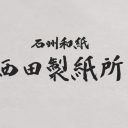 石州和紙
西田製紙所